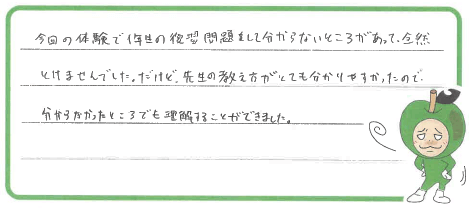 今回の体験で1年生の復習問題をして分からないところがあって、全然
とけませんでした。だけど、先生の教え方がとても分かりやすかったので
分からなかったところでも理解することができました。